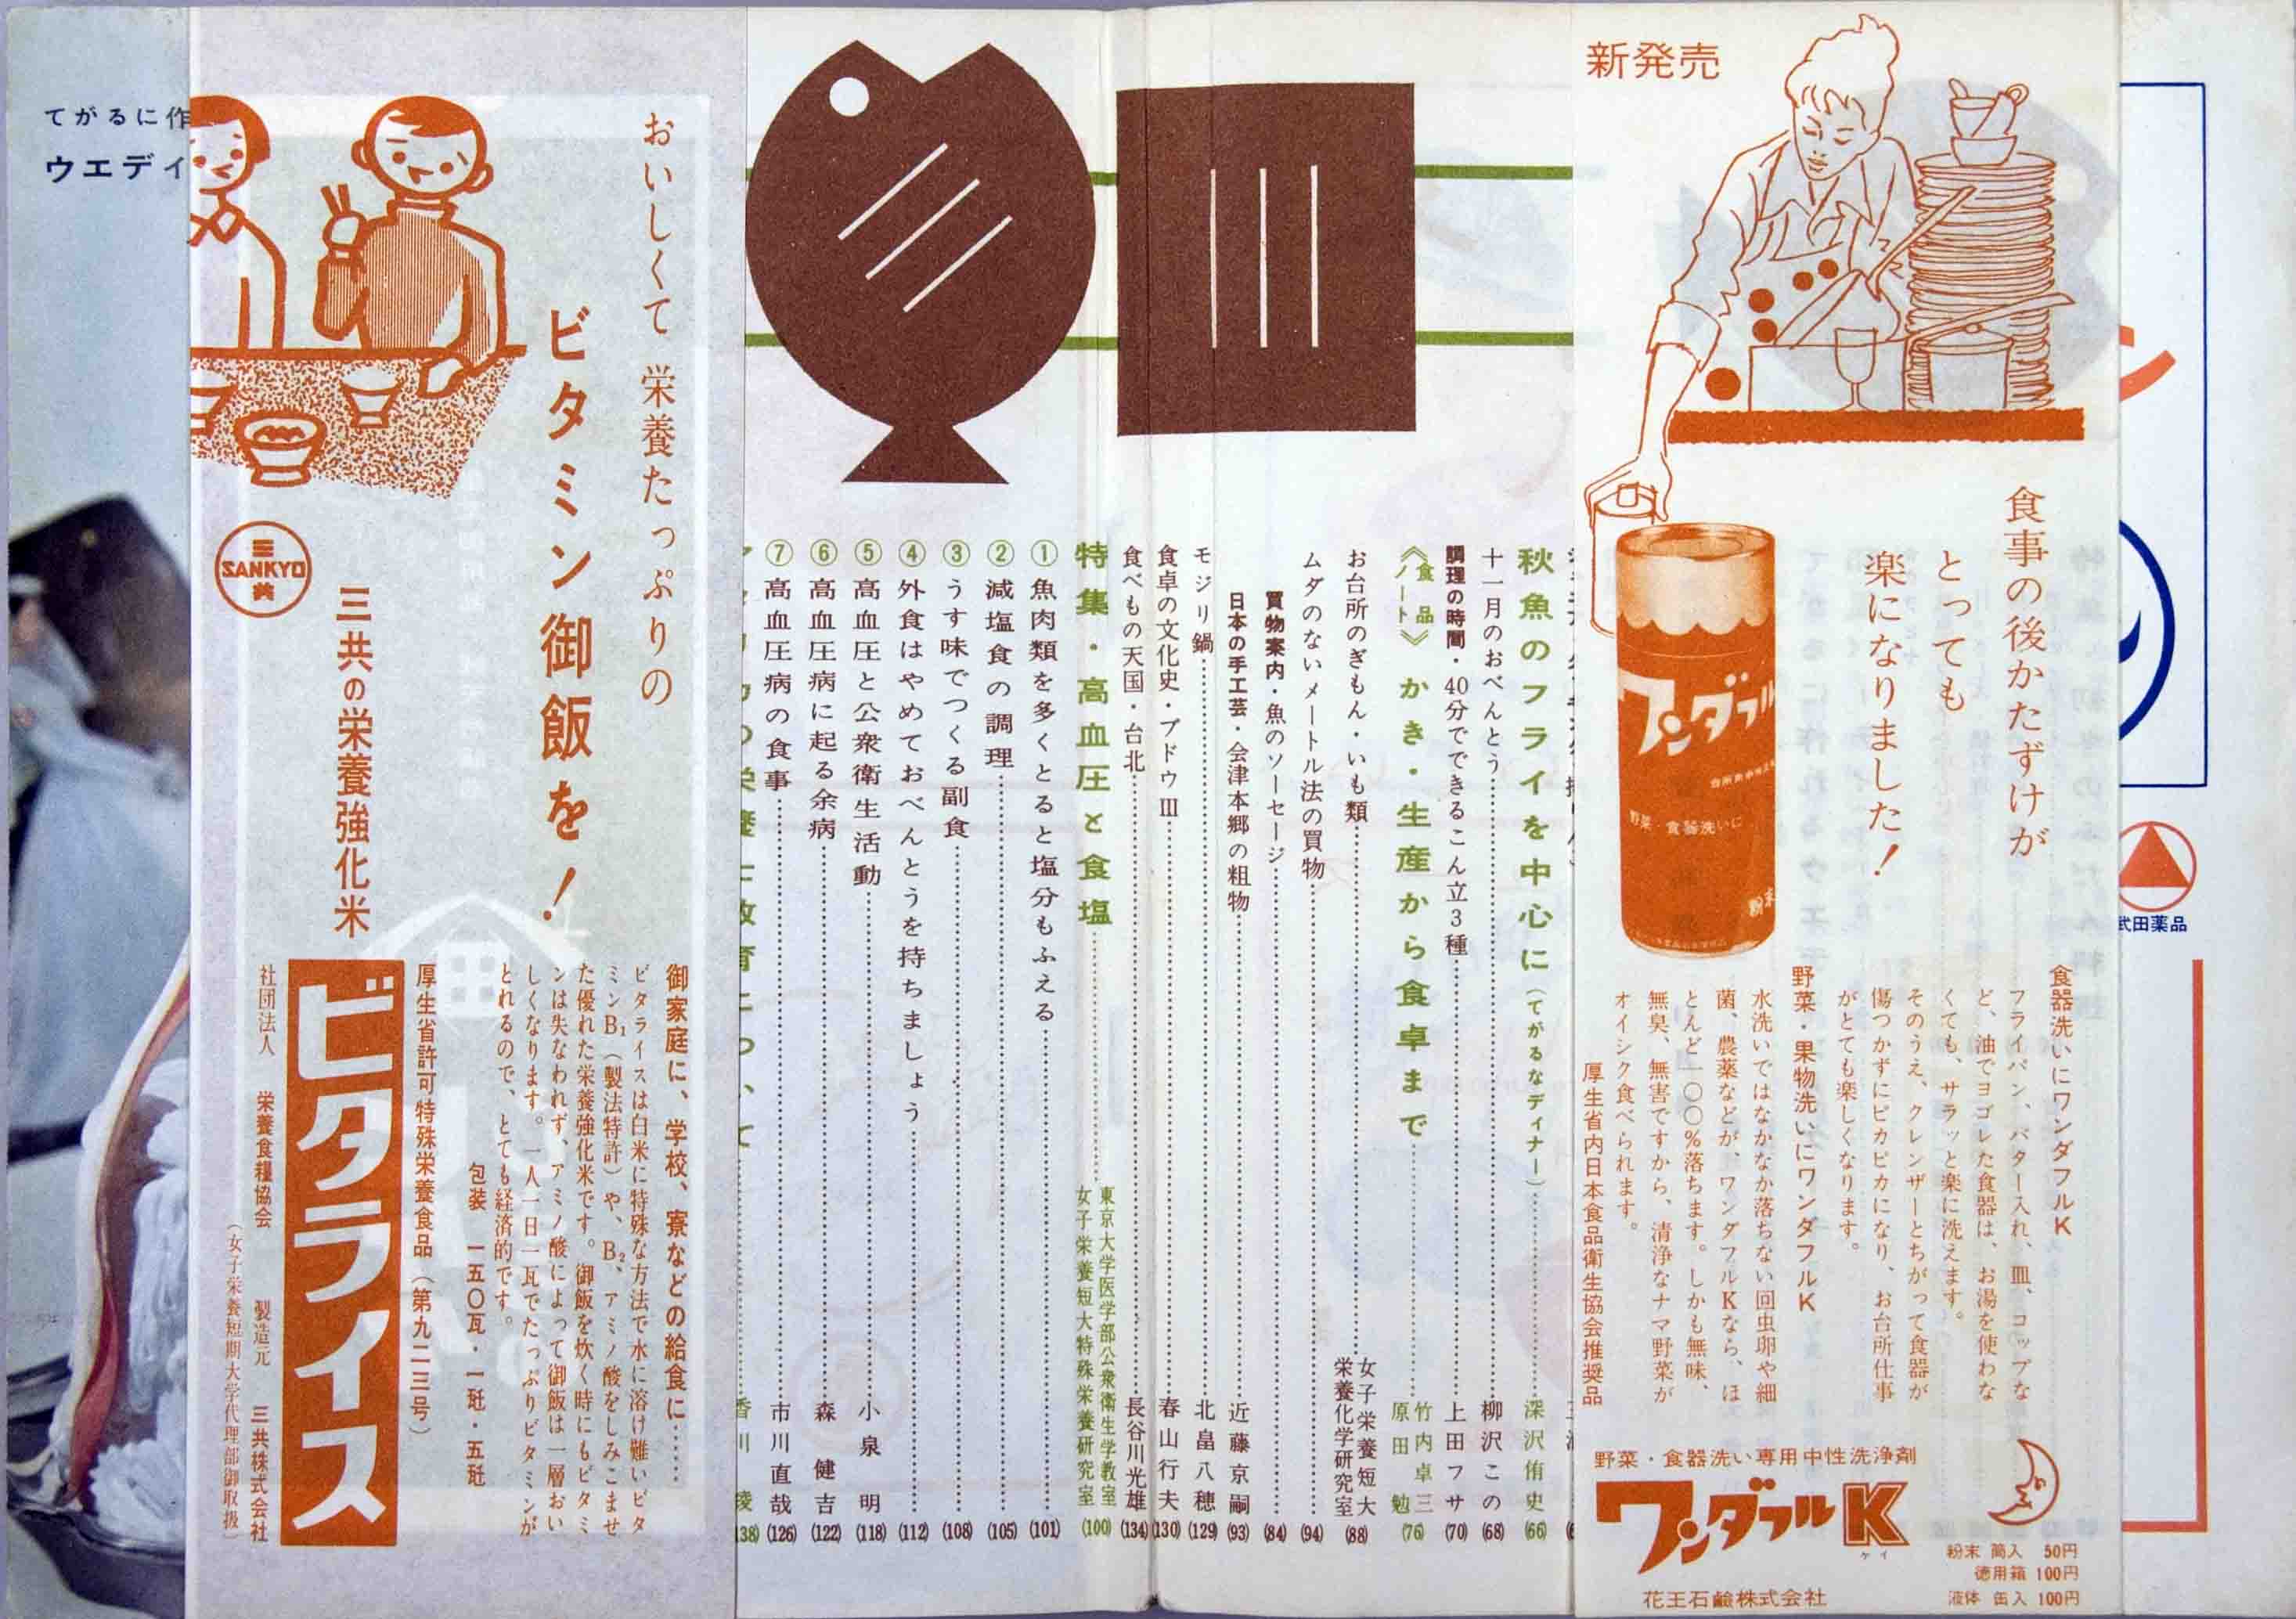 新発売
食事の後かたずけが
とっても
楽になりました!
ワンダフル
野菜・食器洗いに
食器洗いにワンダフルK
フライパン、バター入れ、皿、コップな
ど、油でヨゴレた食器は、お湯を使わな
くても、サラッと楽に洗えます。
そのうえ、クレンザーとちがって食器が
傷つかずにピカピカになり、お台所仕事
がとても楽しくなります。
野菜・果物洗いにワンダフルK
水洗いではなかなか落ちない回虫卵や細
菌、農薬などが、ワンダフルKなら、ほ
とんど一〇〇%落ちます。しかも無味、
無臭、無害ですから、清浄なナマ野菜が
オイシク食べられます。
厚生省内日本食品衛生協会推奨品
野菜・食器洗い専用中性洗浄剤
ワンダフルK
ケイ
粉末 筒入 50円
徳用箱 100円
液体 缶入 100円
花王石鹸株式会社
武田薬品
秋魚のフライを中心に(てがるなディナー)……深沢侑史(66)
十一月のおべんとう……柳沢この(68)
調理の時間・40分でできるこん立3種……上田フサ(70)
《食品ノート》かき・生産から食卓まで……竹内卓三 原田勉(76)
お台所のぎもん・いも類……女子栄養短大栄養化学研究室(88)
ムダのないメートル法の買物……(94)
買物案内・魚のソーセージ……(84)
日本の手工芸・会津本郷の粗物……近藤京嗣(93)
モジリ鍋……北畠八穂(129)
食卓の文化史・ブドウⅢ……春山行夫(130)
食べもの天国・台北……長谷川光雄(134)
特集・高血圧と食塩……東京大学医学部公衆衛生学教室 女子栄養短大特殊栄養研究室(100)
①魚肉類を多くとると塩分もふえる……(101)
②減塩食の調理……(105)
③うす味でつくる副食……(108)
④外食はやめておべんとうを持ちましょう……(112)
⑤高血圧と公衆衛生活動……小泉明(118)
⑥高血圧病に起る余病……森健吉(122)
⑦高血圧病の食事……市川直哉(126)
香川綾(138)
おいしくて 栄養たっぷりの
ビタミン御飯を!
SANKYO
三共
三共の栄養強化米
ビタライス
御家庭に、学校、寮などの給食に……
ビタライスは白米に特殊な方法で水に溶け難いビタ
ミンB₁(製法特許)や、B₂、アミノ酸をしみこませ
た優れた栄養強化米です。御飯を炊く時にもビタミ
ンは失なわれず、アミノ酸によって御飯は一層おい
しくなります。一人一日一瓦でたっぷりビタミンが
とれるので、とても経済的です。
包装 一五〇瓦・一瓩・五瓩
厚生省許可特殊栄養食品(第九二三号)
社団法人 栄養食糧協会 製造元 三共株式会社
(女子栄養短期大学代理部御取扱)
てがるに作
ウエディ